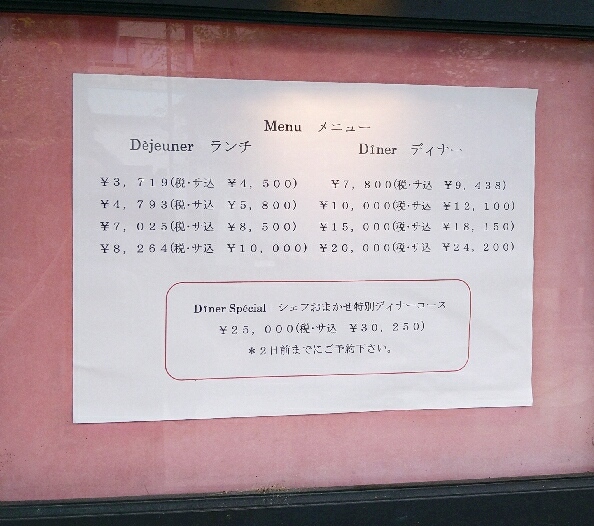 Menu　メニュー
Dèjeuner　ランチ
Dîner　ディナー
¥3, 719(税・サ込　¥4, 500)　¥7, 800(税・サ込　¥9, 438)
¥4, 793(税・サ込　¥5, 800)　¥10, 000(税・サ込　¥12, 100)
¥7, 025(税・サ込　¥8, 500)　¥15, 000(税・サ込　¥18, 150)
¥8, 264(税・サ込　¥10, 000)　¥20, 000(税・サ込　¥24, 200)
Dîner Spécial　シェフおまかせ特別ディナーコース
¥25, 000(税・サ込　¥30, 250)
＊2日前までにご予約下さい。